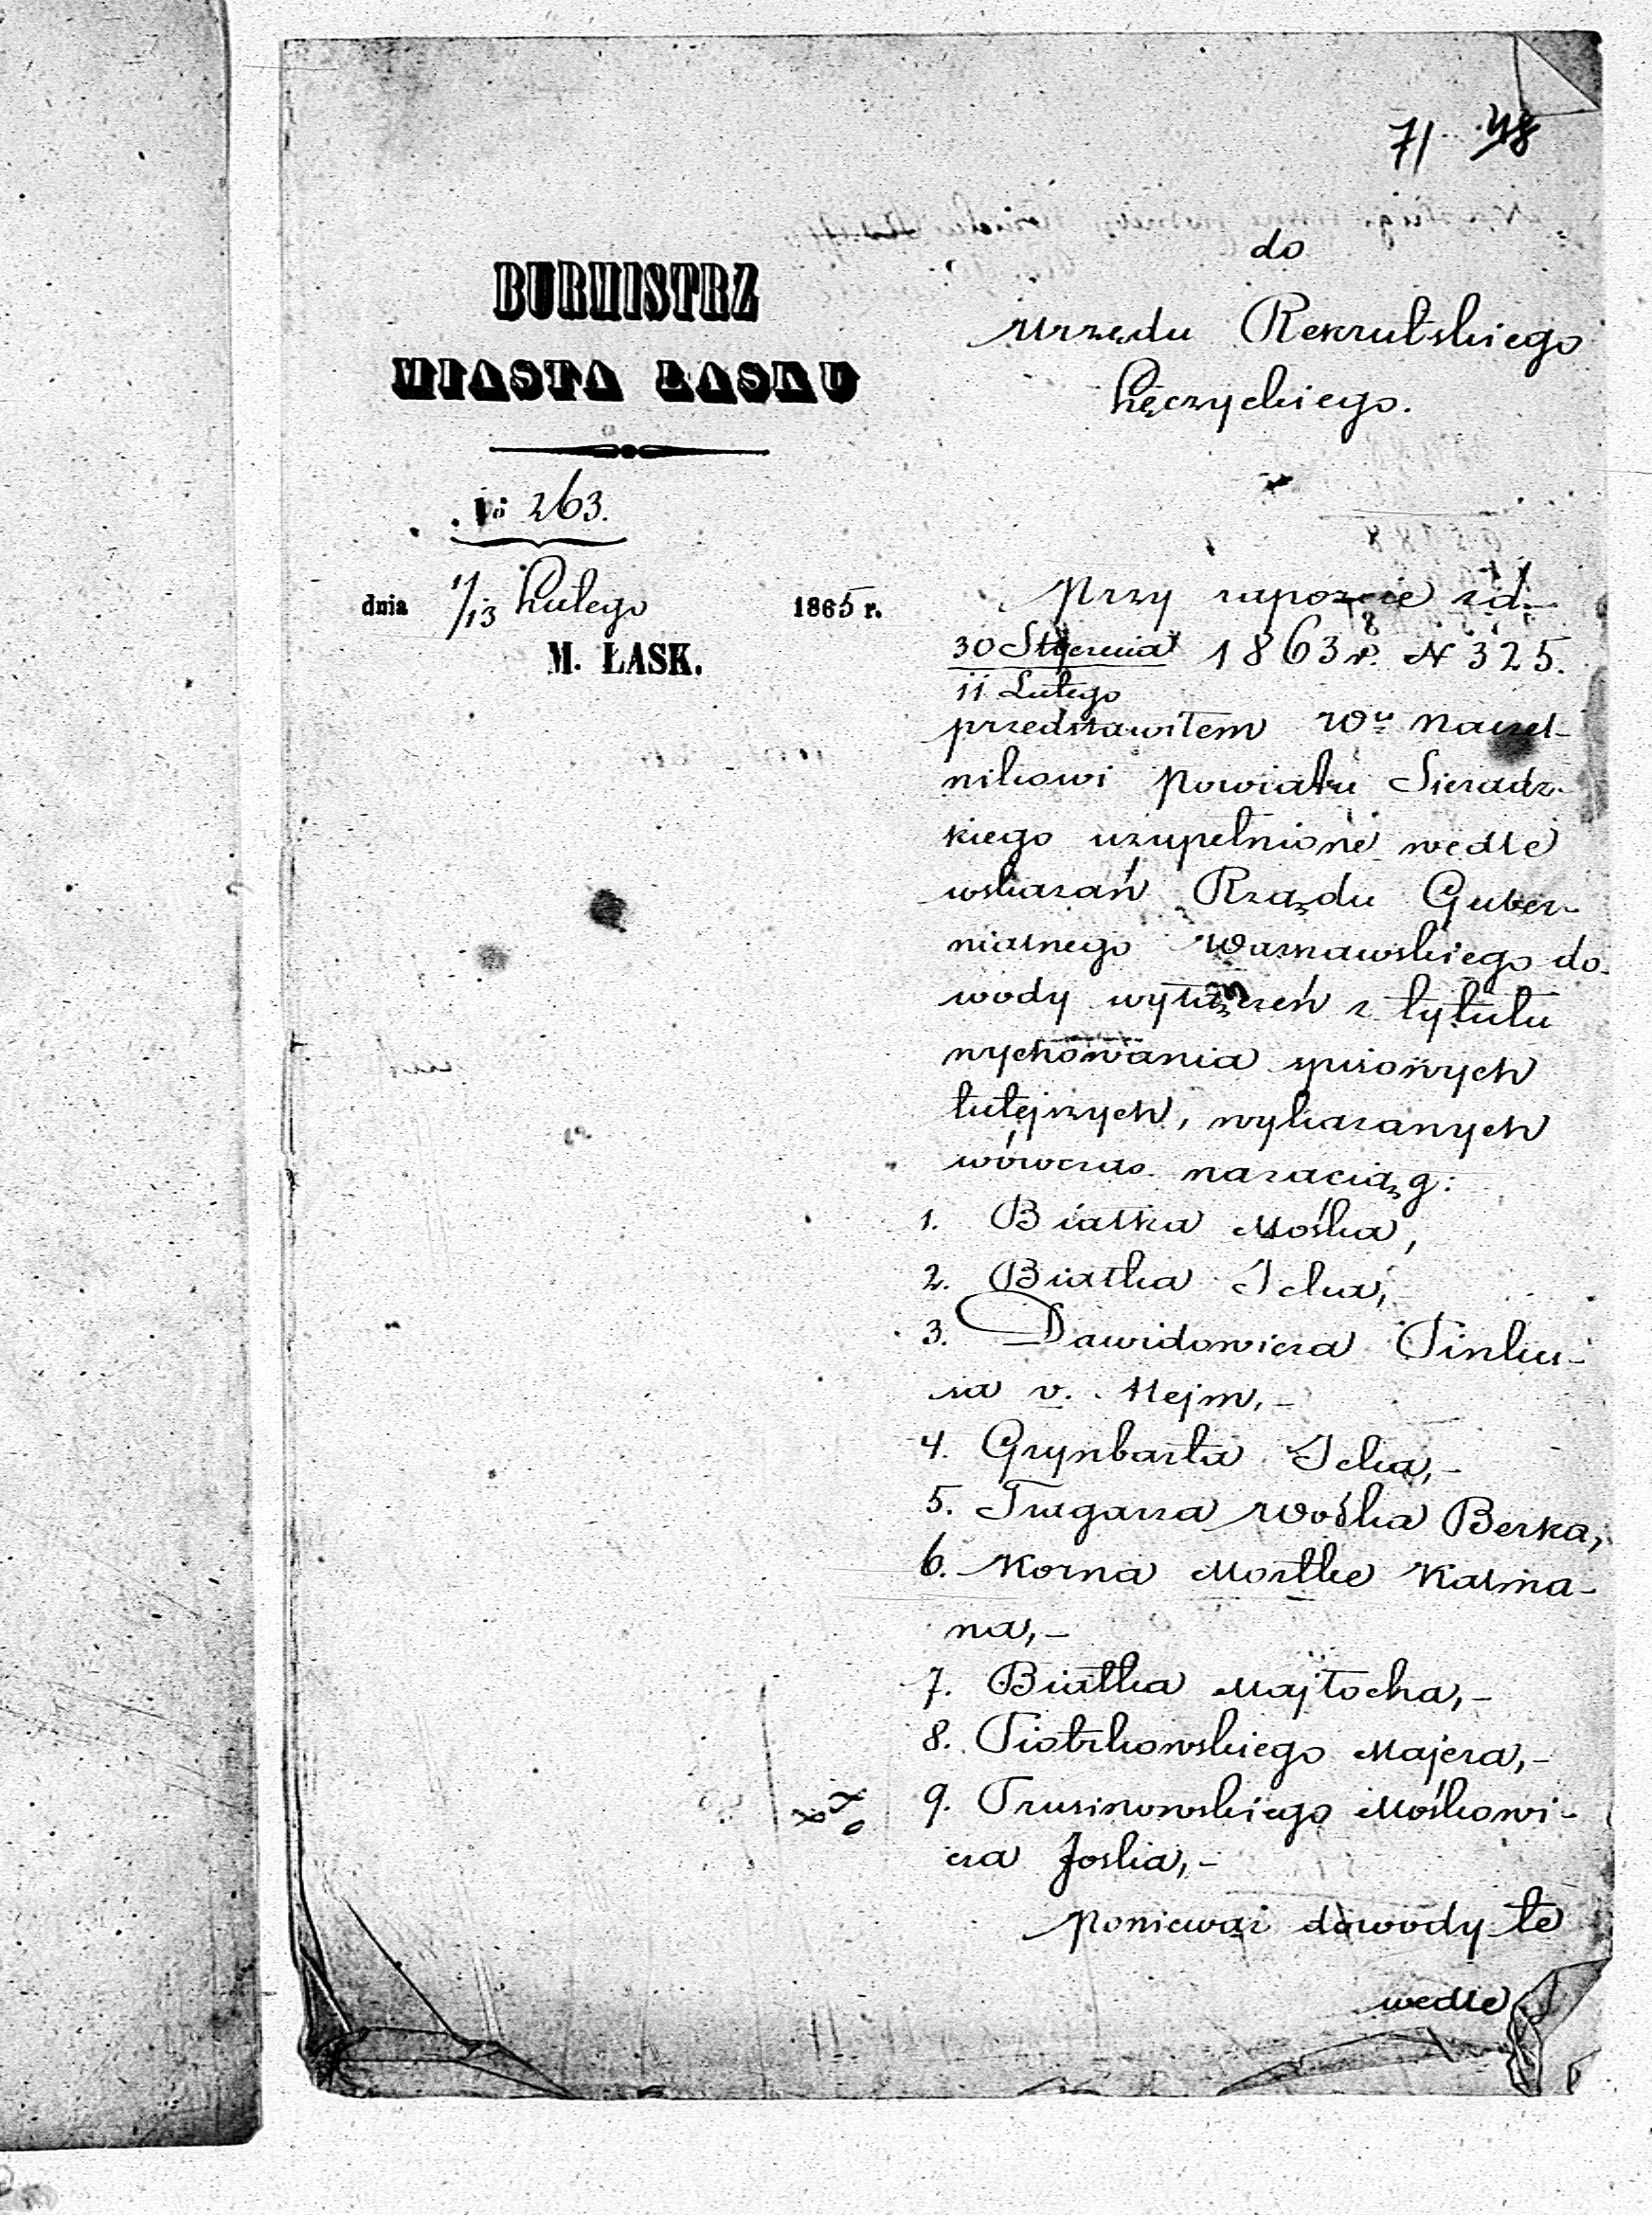 71 48
BURMISTRZ
MIASTA ŁASKU
№ 263.
dnia 1/13 Lutego 1865 r.
M. ŁASK.
do
Urzędu Rekrutskiego
Łęczyckiego.
Przy raporcie zd.
30 Stycznia 1863 r. N 325.
11 Lutego
przedstawiłem Wu Naczel-
nikowi Powiatu Sieradz-
kiego uzupełnione wedle
wskazań Rządu Guber-
nialnego Warszawskiego do-
wody wyłączeń z tytułu
wychowania spisowych
tutejszych, wykazanych
wówczas na zaciąg:
1. Białka Mośka,
2. Białka Icka,
3. Dawidowicza Pinku-
sa v. Hejm,-
4. Grynbarta Icka,-
5. Tragarza Wośka Berka,
6. Korna Mortke Kalma-
na,-
7. Białka Majłocha,-
8. Piotrkowskiego Majera,-
9. Prusinowskiego Mośkowi-
cza Joska,-
Ponieważ dowody te
wedle